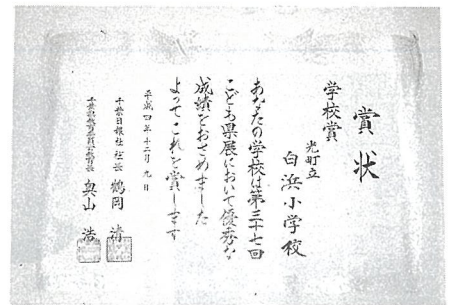 賞状
学校賞
光町立
白浜小学校
あなたの学校は第三十七回
こども県展において優秀な
成績をおさめました
よってこれを賞します
平成四年十二月九日
千葉日報社社長 鶴岡 清
千葉県教育委員会教育長 奥山 浩